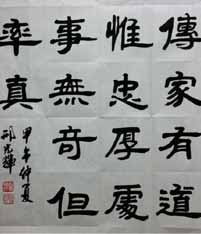 傳家有道
惟忠厚處
事無奇但
率真
甲午仲夏
光輝